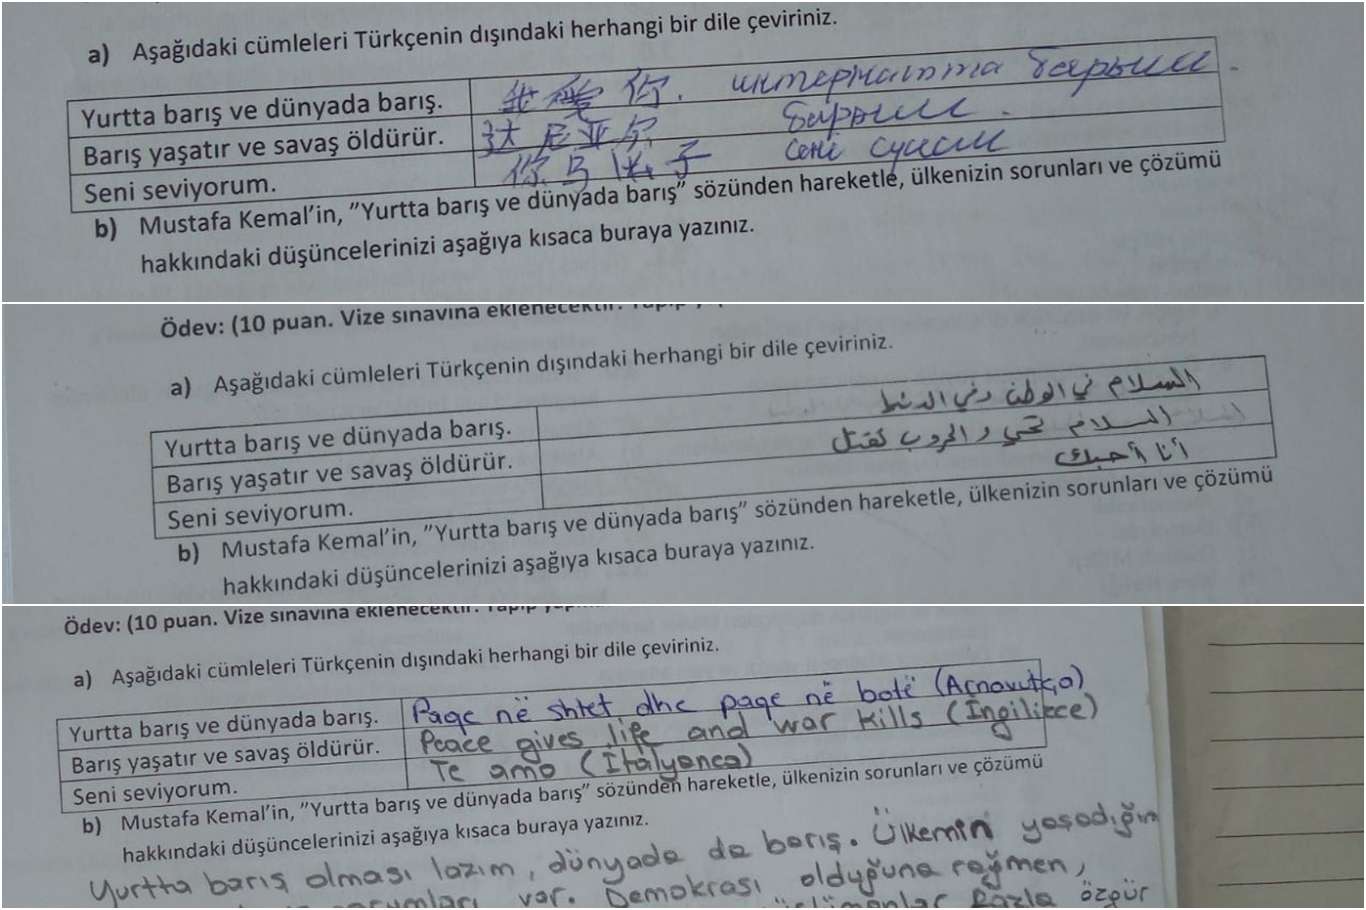 a) Aşağıdaki cümleleri Türkçenin dışındaki herhangi bir dile çeviriniz.
Yurtta barış ve dünyada barış. 我爱你.
Barış yaşatır ve savaş öldürür. 达尼亚尔
Seni seviyorum. 你
b) Mustafa Kemal’in, ”Yurtta barış ve dünyada barış” sözünden hareketle, ülkenizin sorunları ve çözümü
hakkındaki düşüncelerinizi aşağıya kısaca buraya yazınız.
Ödev: (10 puan. Vize sınavına eklenecektir.
a) Aşağıdaki cümleleri Türkçenin dışındaki herhangi bir dile çeviriniz.
Yurtta barış ve dünyada barış. السلام في الوطن وفي الدنيا
Barış yaşatır ve savaş öldürür. السلام تحيي والحروب تقتل
Seni seviyorum. أنا أحبك
b) Mustafa Kemal’in, ”Yurtta barış ve dünyada barış” sözünden hareketle, ülkenizin sorunları ve çözümü
hakkındaki düşüncelerinizi aşağıya kısaca buraya yazınız.
Ödev: (10 puan. Vize sınavına eklenecektir.
a) Aşağıdaki cümleleri Türkçenin dışındaki herhangi bir dile çeviriniz.
Yurtta barış ve dünyada barış. Paqe në shtet dhe paqe në botë (Arnavutça)
Barış yaşatır ve savaş öldürür. Peace gives life and war kills (İngilizce)
Seni seviyorum. Te amo (İtalyanca)
b) Mustafa Kemal’in, ”Yurtta barış ve dünyada barış” sözünden hareketle, ülkenizin sorunları ve çözümü
hakkındaki düşüncelerinizi aşağıya kısaca buraya yazınız.
Yurtta barış olması lazım, dünyada da barış. Ülkemin yaşadığın
var. Demokrasi olduğuna rağmen,
fazla özgür